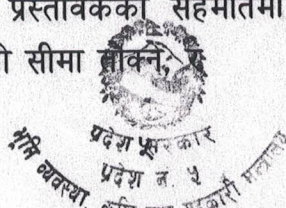 प्रस्तावकको सहमतिमा
सीमा तोक्ने,
प्रदेश सरकार
प्रदेश नं. ५
भूमि व्यवस्था, कृषि तथा सहकारी मन्त्रालय